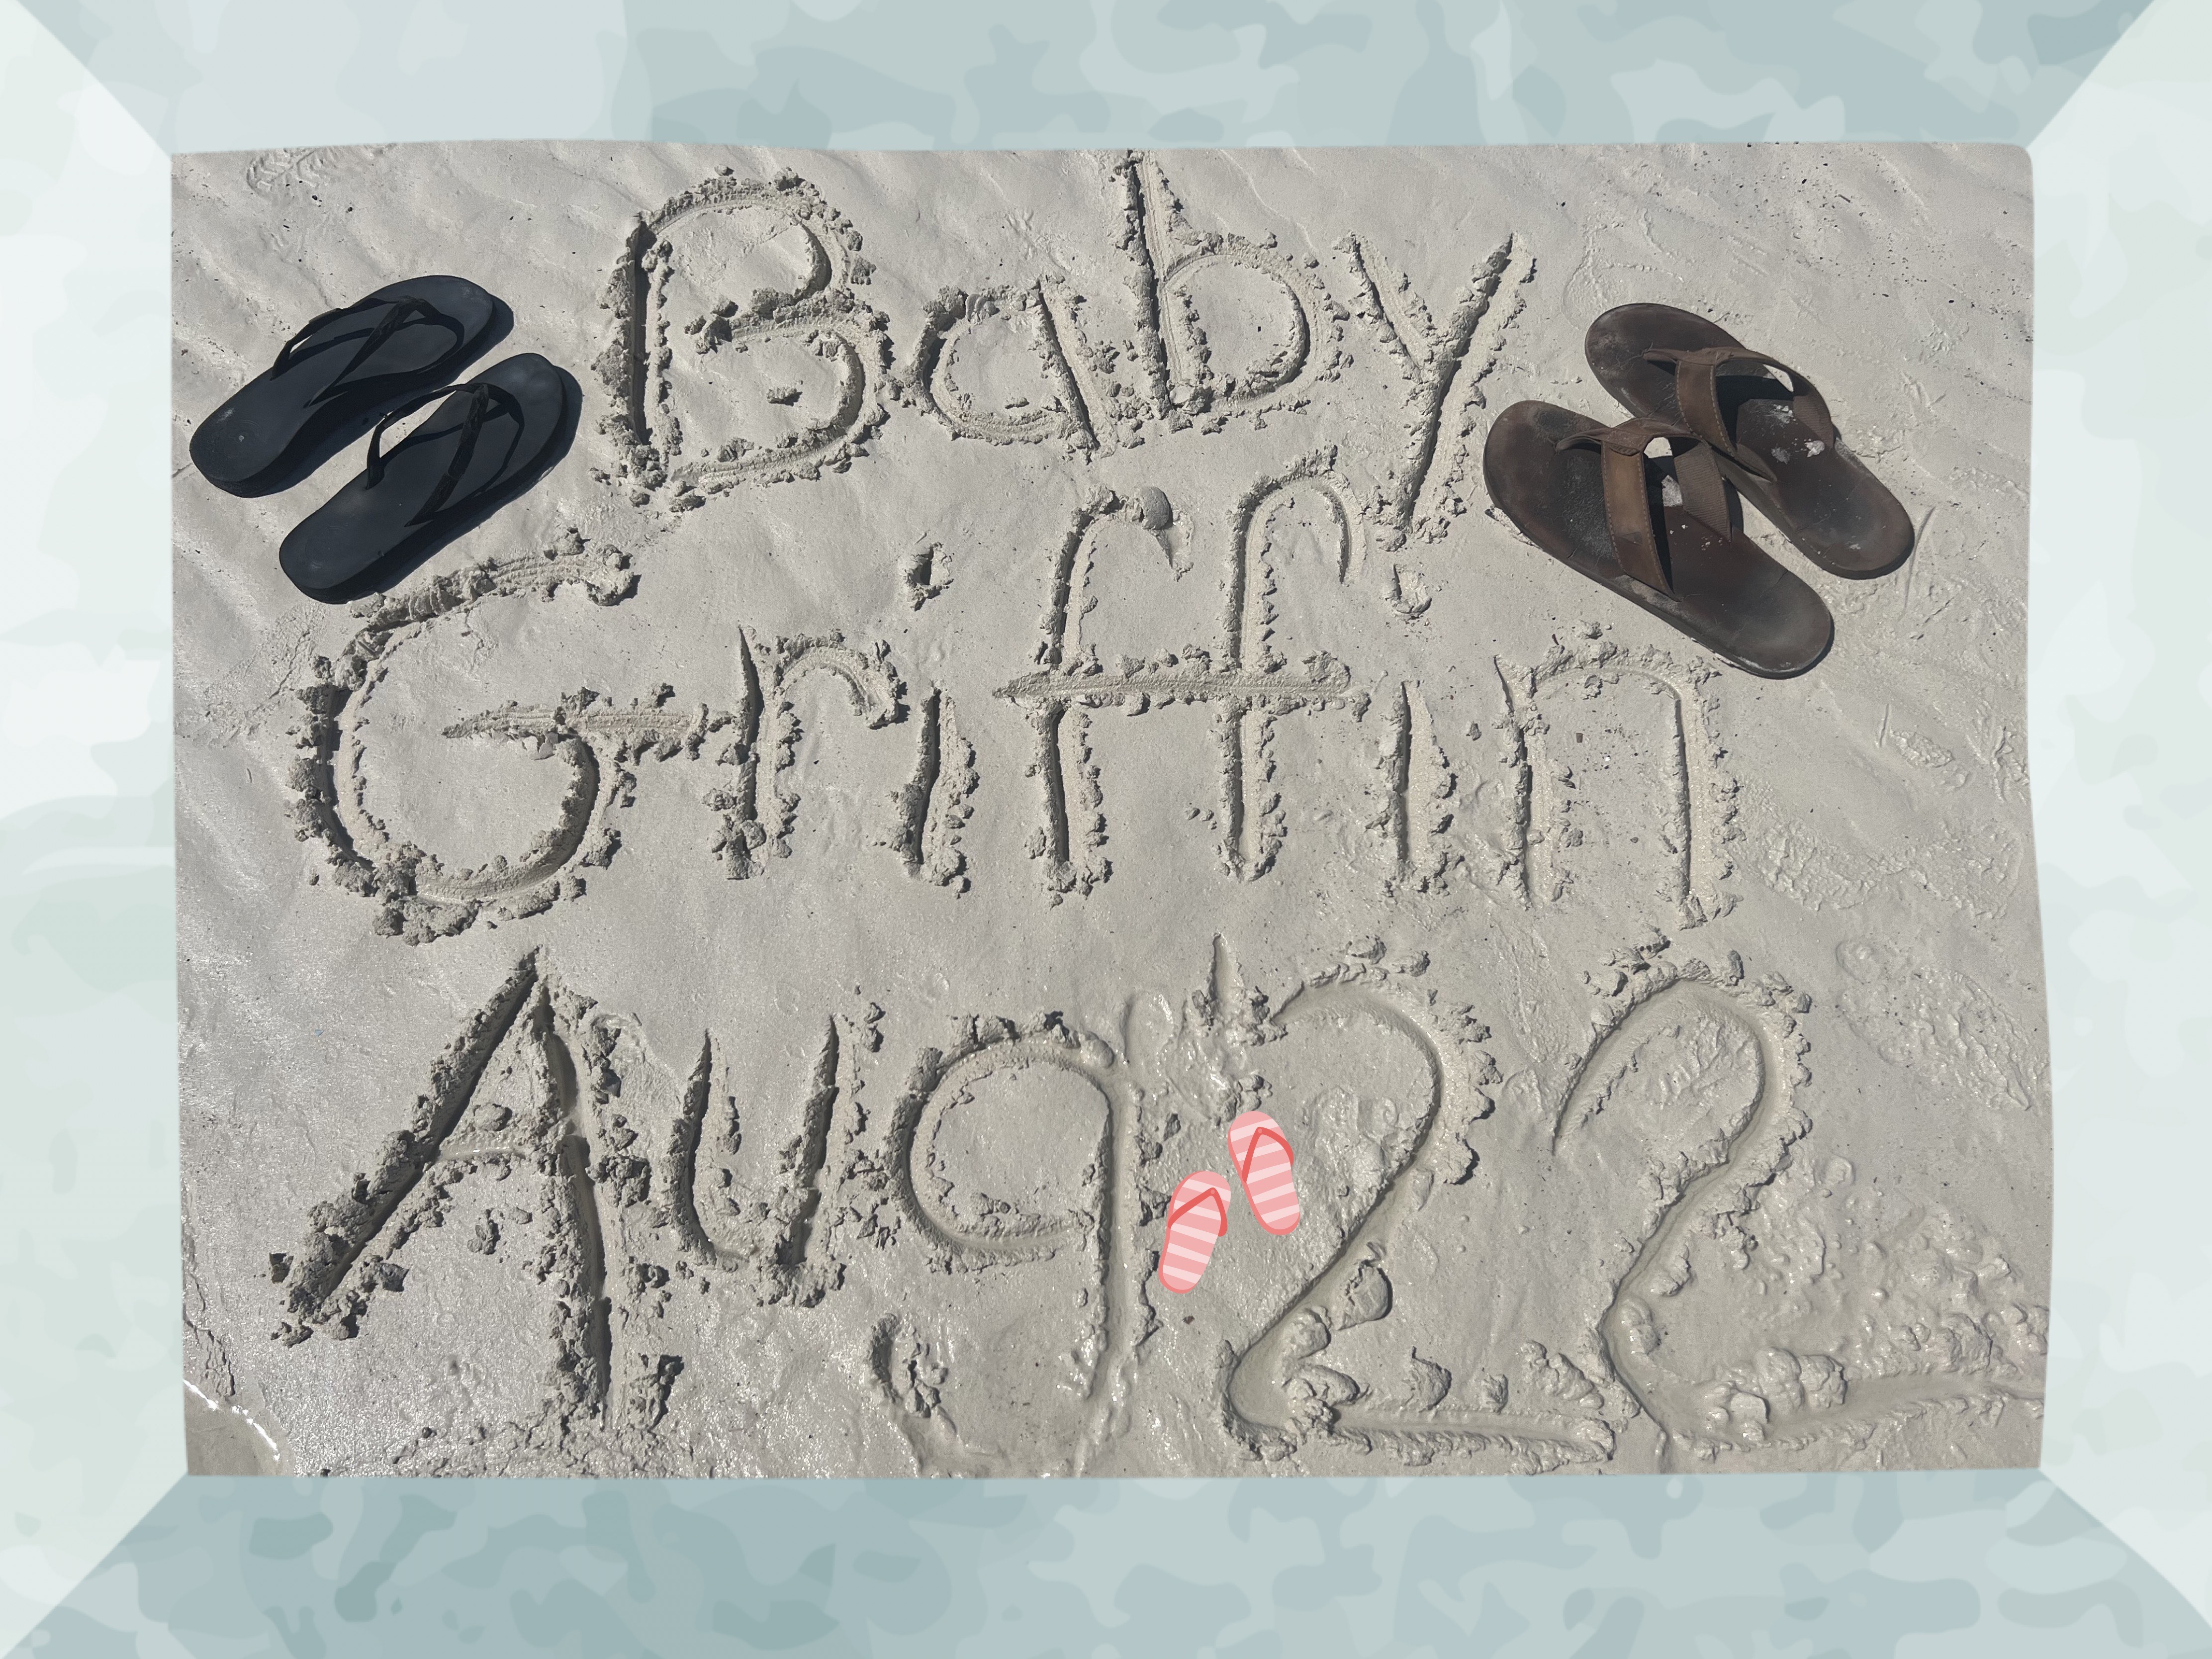 Baby
Griffin
Aug 22